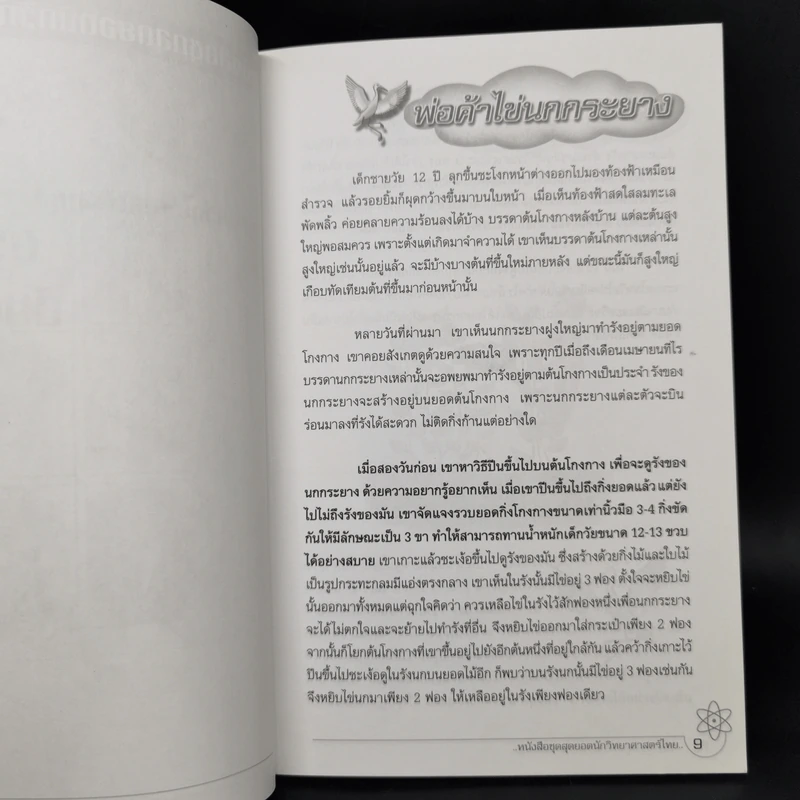 พ่อค้าไข่นกกระยาง
เด็กชายวัย 12 ปี ลุกขึ้นชะโงกหน้าต่างออกไปมองท้องฟ้าเหมือน
สำรวจ แล้วรอยยิ้มก็ผุดกว้างขึ้นมาบนใบหน้า เมื่อเห็นท้องฟ้าสดใสลมทะเล
พัดพลิ้ว ค่อยคลายความร้อนลงได้บ้าง บรรดาต้นโกงกางหลังบ้าน แต่ละต้นสูง
ใหญ่พอสมควร เพราะตั้งแต่เกิดมาจำความได้ เขาเห็นบรรดาต้นโกงกางเหล่านั้น
สูงใหญ่เช่นนั้นอยู่แล้ว จะมีบ้างบางต้นที่ขึ้นใหม่ภายหลัง แต่ขณะนี้มันก็สูงใหญ่
เกือบทัดเทียมต้นที่ขึ้นมาก่อนหน้านั้น
หลายวันที่ผ่านมา เขาเห็นนกกระยางฝูงใหญ่มาทำรังอยู่ตามยอด
โกงกาง เขาคอยสังเกตดูด้วยความสนใจ เพราะทุกปีเมื่อถึงเดือนเมษายนทีไร
บรรดานกกระยางเหล่านั้นจะอพยพมาทำรังอยู่ตามต้นโกงกางเป็นประจำ รังของ
นกกระยางจะสร้างอยู่บนยอดต้นโกงกาง เพราะนกกระยางแต่ละตัวจะบิน
ร่อนมาลงที่รังได้สะดวก ไม่ติดกิ่งก้านแต่อย่างใด
เมื่อสองวันก่อน เขาหาวิธีปีนขึ้นไปบนต้นโกงกาง เพื่อจะดูรังของ
นกกระยาง ด้วยความอยากรู้อยากเห็น เมื่อเขาปีนขึ้นไปถึงกิ่งยอดแล้ว แต่ยัง
ไปไม่ถึงรังของมัน เขาจัดแจงรวบยอดกิ่งโกงกางขนาดเท่านิ้วมือ 3-4 กิ่งขัด
กันให้มีลักษณะเป็น 3 ขา ทำให้สามารถทานน้ำหนักเด็กวัยขนาด 12-13 ขวบ
ได้อย่างสบาย เขาเกาะแล้วชะเง้อขึ้นไปดูรังของมัน ซึ่งสร้างด้วยกิ่งไม้และใบไม้
เป็นรูปกระทะกลมมีแอ่งตรงกลาง เขาเห็นในรังนั้นมีไข่อยู่ 3 ฟอง ตั้งใจจะหยิบไข่
นั้นออกมาทั้งหมดแต่ฉุกใจคิดว่า ควรเหลือไข่ในรังไว้สักฟองหนึ่งเพื่อนกกระยาง
จะได้ไม่ตกใจและจะย้ายไปทำรังที่อื่น จึงหยิบไข่ออกมาใส่กระเป๋าเพียง 2 ฟอง
จากนั้นก็โยกต้นโกงกางที่เขาขึ้นอยู่ไปยังอีกต้นหนึ่งที่อยู่ใกล้กัน แล้วคว้ากิ่งเกาะไว้
ปีนขึ้นไปชะเง้อดูในรังนกบนยอดไม้อีก ก็พบว่าบนรังนกนั้นมีไข่อยู่ 3 ฟองเช่นกัน
จึงหยิบไข่นกมาเพียง 2 ฟอง ให้เหลืออยู่ในรังเพียงฟองเดียว
..หนังสือชุดสุดยอดนักวิทยาศาสตร์ไทย.. 9